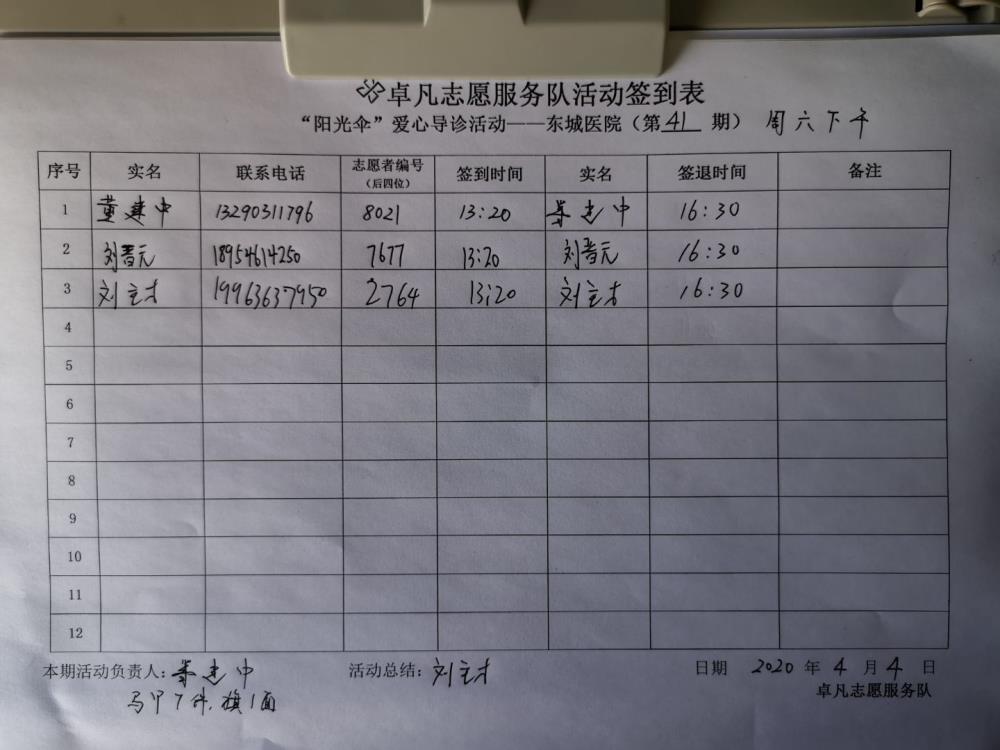 卓凡志愿服务队活动签到表
“阳光伞”爱心导诊活动——东城医院（第41期） 周六下午
序号 实名 联系电话 志愿者编号（后四位） 签到时间 实名 签退时间 备注
1 董建中 13290311796 8021 13:20 董建中 16:30
2 刘晋元 18954614250 7677 13:20 刘晋元 16:30
3 刘立才 19963637950 2764 13:20 刘立才 16:30
4
5
6
7
8
9
10
11
12
本期活动负责人：董建中 活动总结：刘立才 日期 2020年4月4日
马甲7件，旗1面 卓凡志愿服务队